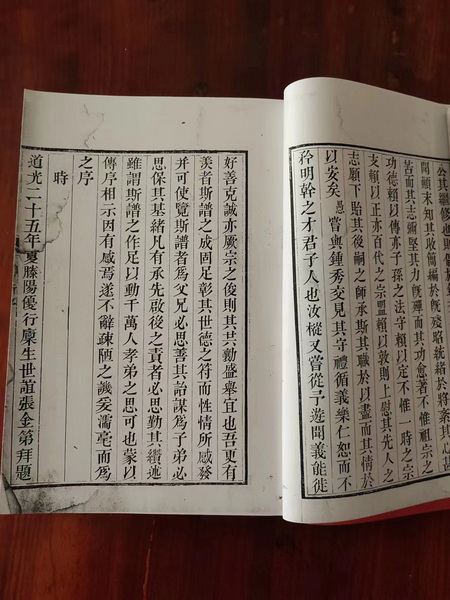 公其繼修也則
問顛末知其收簡編於旣殘略統緒於將紊其心甚
苦而其志術堅其力旣殫而其功愈著不惟祖宗之
功德賴以傳亦子孫之法守賴以定不惟一時之宗
支賴以正亦百代之宗盟賴以敦則上慰其先人之
志願下貽其後嗣之師承斯其職於以盡而其情於
以安矣愚嘗與鍾秀交見其守禮循義樂仁恕而不
矜明幹之才君子人也汝樅又嘗從予遊聞義能徙
好善克誠亦厥宗之俊則其共勷盛舉宜也吾更有
羡者斯譜之成固足彰其世德之符而性情所感發
并可使覽斯譜者爲父兄必思善其詒謀爲子弟必
思保其基緒凡有承先啟後之責者必思勤其纘述
雖謂斯譜之作足以動千萬人孝弟之思可也蒙以
傳序相示因有感焉遂不辭疎陋之譏妄濡毫而爲
之序
時
道光二十五年夏滕陽優行廩生世誼張金第拜題